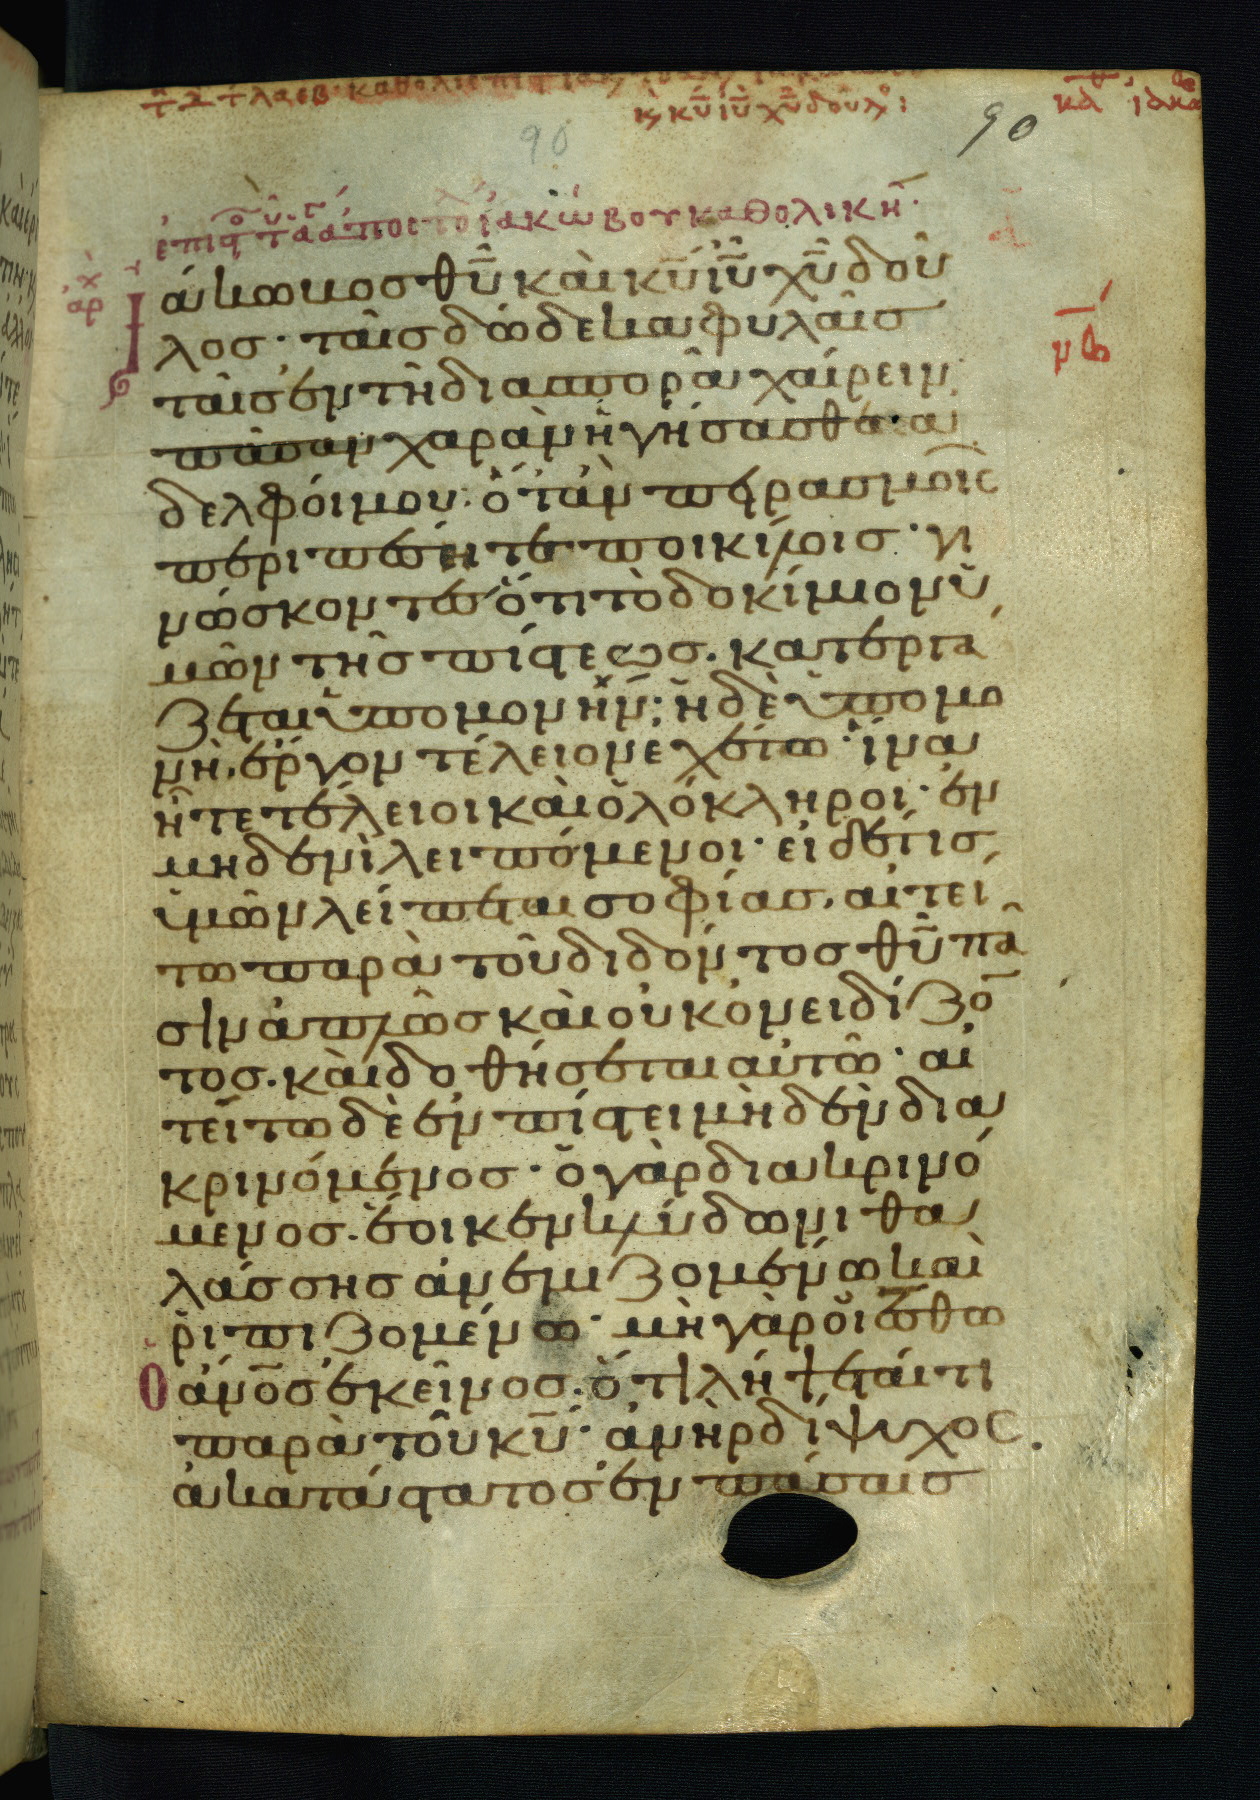 κ(αι) κῡ ιῡ χῡ δοῦλο(ς):
90
90
ἐπιστο τοῦ ἁγίου ἀποστό ἰακώβου καθολικὴ·
ἀρχ
Ἰάκωβος θῡ καὶ κῡ ἰῡ χῡ δοῦ
λος· ταῖς δώδεκα φυλαῖς
ταῖς ἐν τῆ διασπορᾶ χαίρειν·
πᾶσαν χαρὰν ἡγήσασθαι ἀ
δελφοί μου· ὅταν πειρασμοῖς
περιπέσητε ποικίλοις· γι
νώσκοντες ὅτι τὸ δοκίμιον ὑ
μῶν τῆς πίστεως. κατεργά
ζεται ὑπομονήν· ἡ δὲ ὑπομο
νὴ, ἔργον τέλειον ἐχέτω· ἵνα
ἦτε τέλειοι καὶ ὁλόκληροι· ἐν
μηδενὶ λειπόμενοι· εἰ δέ τις
ὑμῶν λείπεται σοφίας, αἰτεί
τω παρὰ τοῦ διδόντος θῡ πᾶ
σιν ἁπλῶς καὶ οὐκ ὀνειδίζο̄
τος. καὶ δοθήσεται αὐτῶ· αἰ
τείτω δὲ ἐν πίστει μηδὲν δια
κρινόμενος· ὁ γὰρ διακρινό
μενος. ἔοικεν κλύδωνι θα
λάσσης ἀνεμιζομένω καὶ
ῥιπιζομένω· μὴ γὰρ οἰέσθω
ὁ ἄνο̄ς ἐκεῖνος. ὅτι λήψεταί τι
παρὰ τοῦ κῡ· ἀνὴρ δίψυχος
ἀκατάστατος ἐν πάσαις